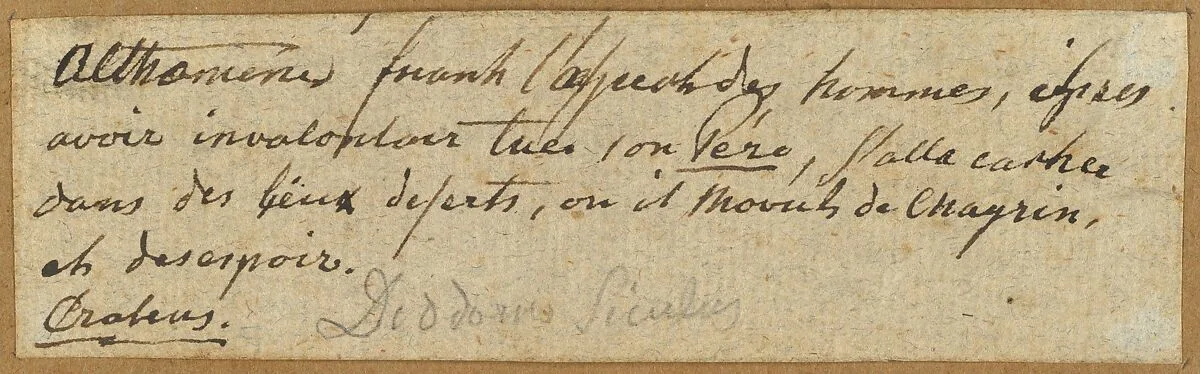 Althomenes fuiant l'aspect des hommes, apres
avoir involontair tuer son Pére, s'alla cacher
dans des lieux deserts, ou il Mourut de Chagrin,
et desespoir.
Crateus. Diodorus Siculus